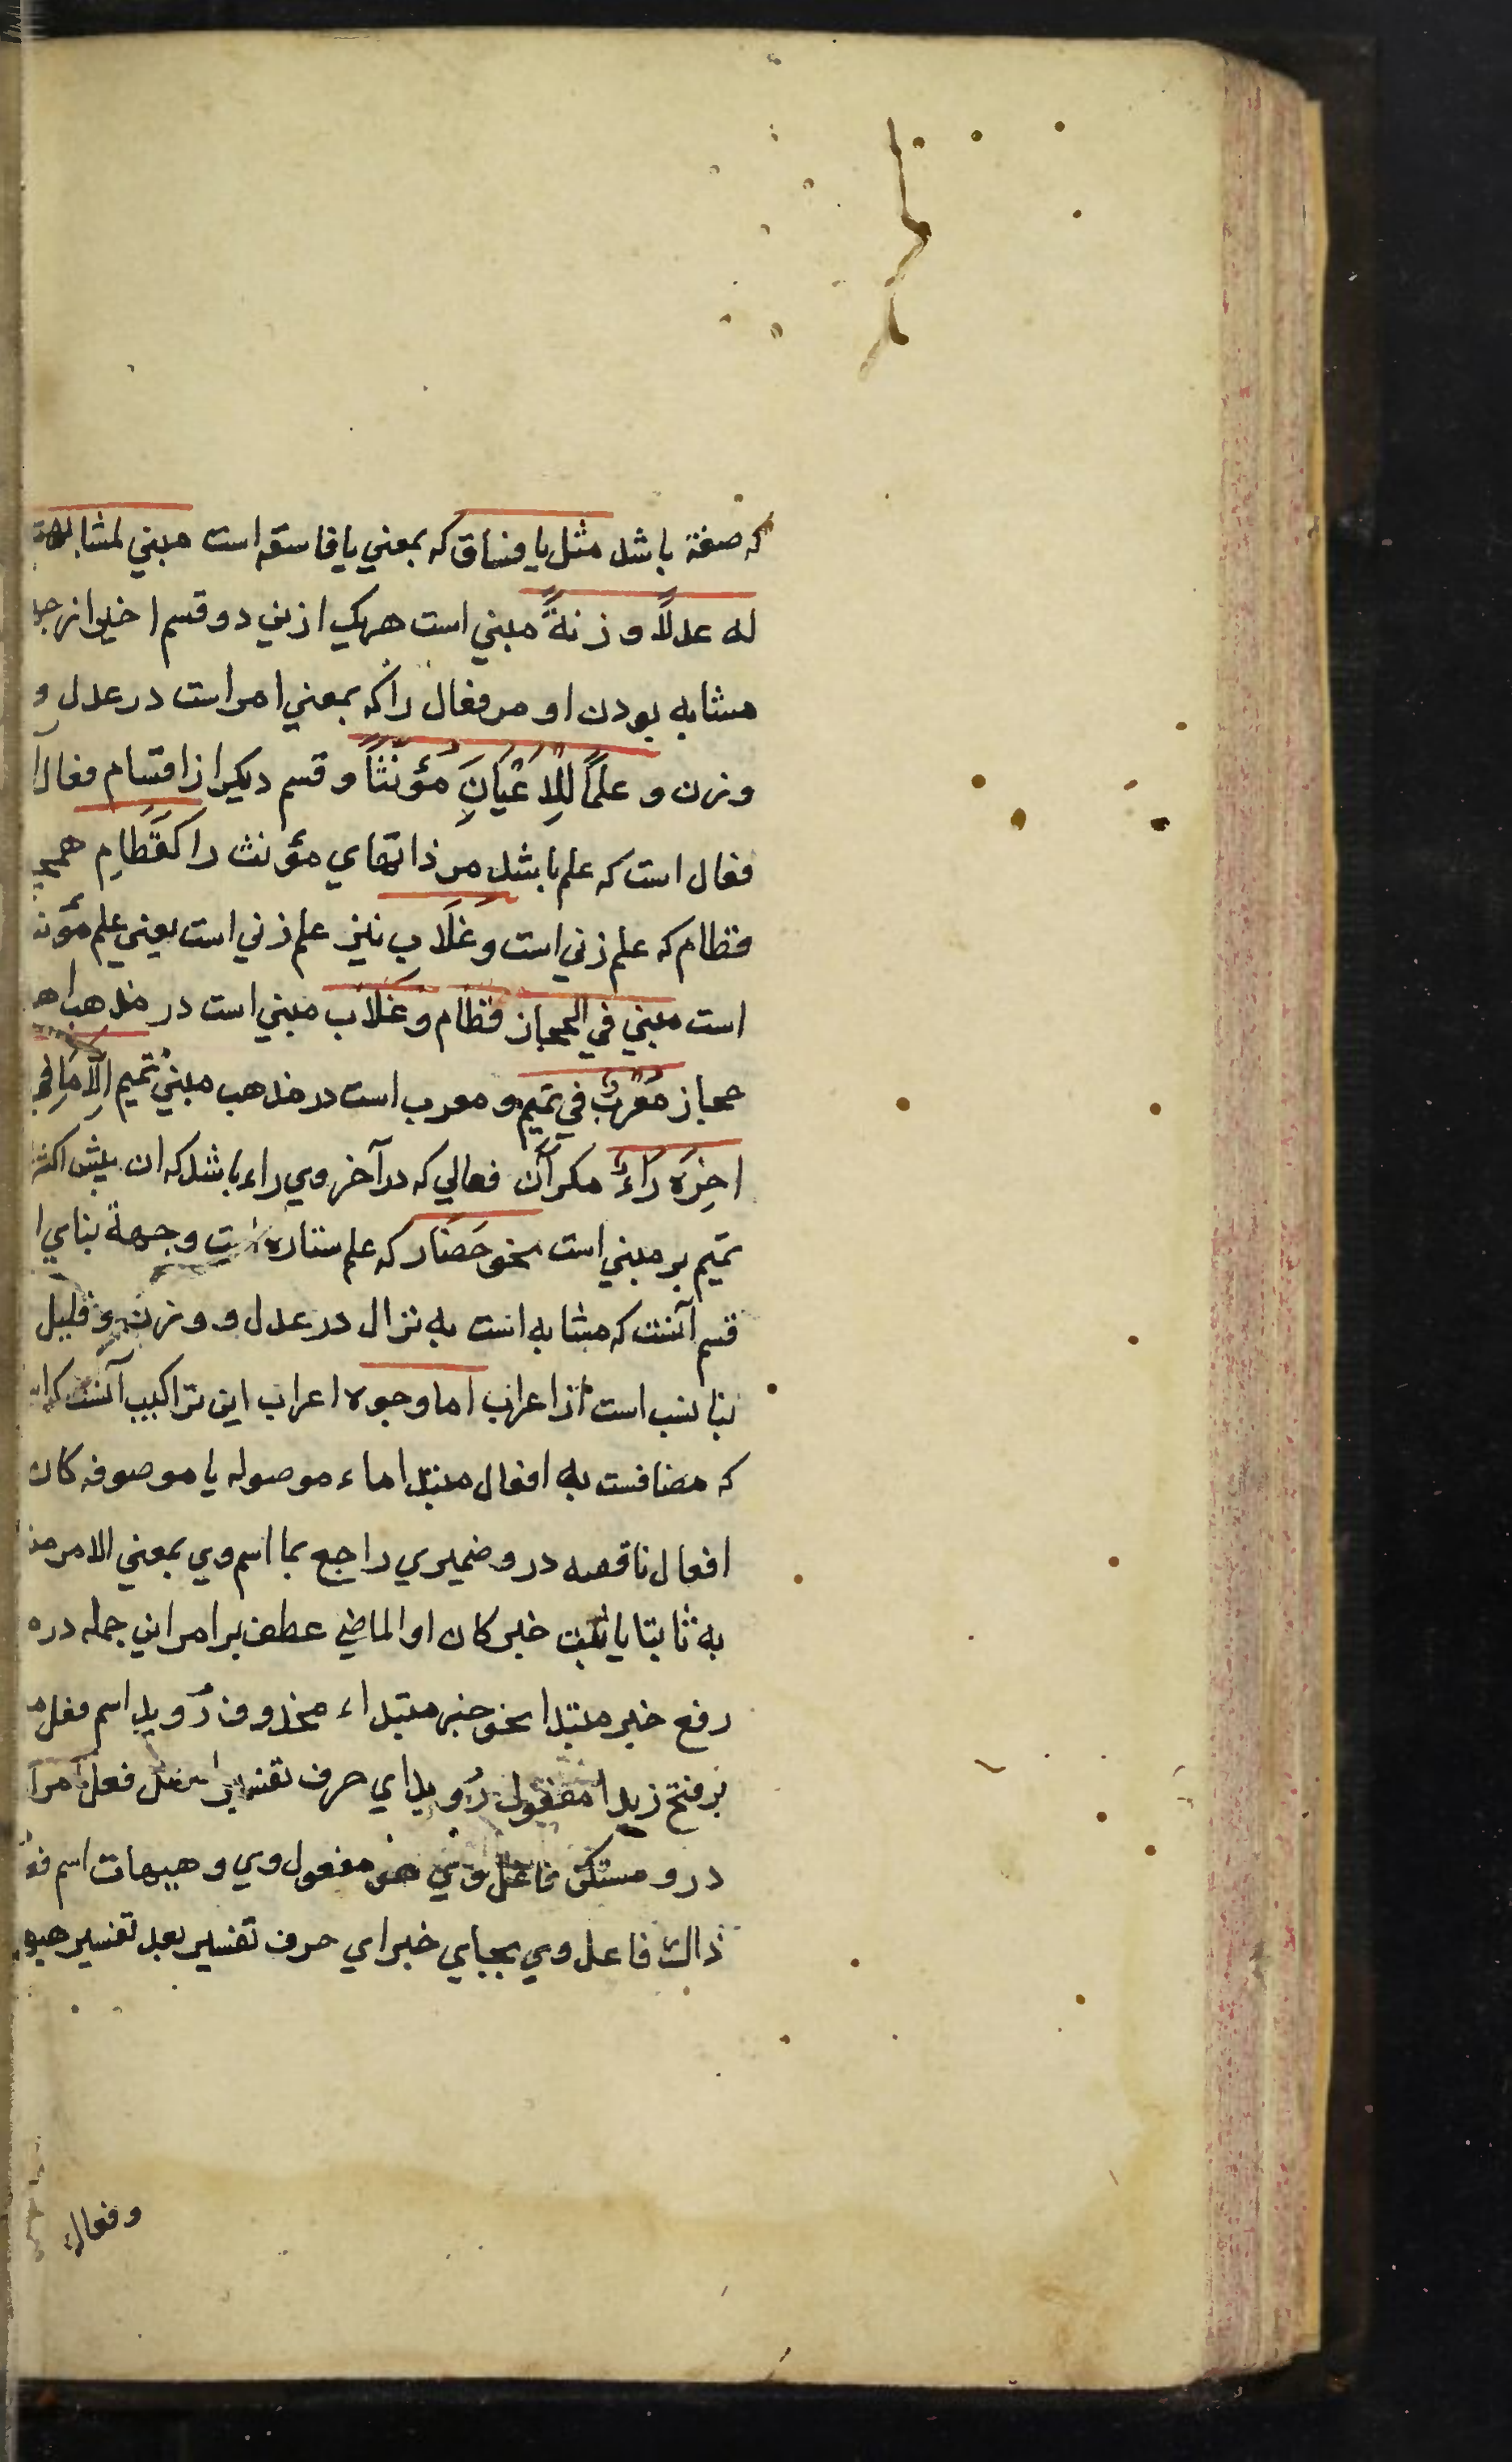 که صفة باشد مثل یا فساق که بمعني یا فاسقه است مبني لمشابهة
له عدلًا و زنةً مبني است هریک ازین دو قسم اخیر از جه
مشابه بودن او مر فعال را که بمعني امر است در عدل و
وزن و علمًا لِلاَعْیَانِ مُؤنَثًا و قسم دیکر از اقسام فعال
فعال است که علم باشد مر ذاتهاي مؤنث را کَقَطَامِ همچ
قطام که علم زني است و غَلَاب نیز علم زني است یعني علم مؤنث
است مبني في الحجاز قطام و غلاب مبني است در مذهب اه
حجاز مُعْرَبٌ في تمیم و معرب است در مذهب مبنيْ تمیم اِلّا مَا فِي
اخِرَه رَاءٌ مکر آن فعالي که در آخر وي راء باشد که ان پیش اکثر
تمیم بر مبني است نحو حَضَار که علم ستاره است و جهة بناي ا
قسم آنست که مشابه است به نزال در عدل و وزن و قلیل
بنا نسب است از اعراب اما وجوه اعراب این تراکیب آنست که
که مضافست به افعال مبتدا ماء موصوله یا موصوفه کان
افعال ناقصه درو ضمیري راجع بما اسم وي بمعني الامر
به ثابتا یا ثبت خبر کان او الماضي عطف بر امر این جمله در
رفع خبر مبتدا نحو خبر مبتداء محذوف رُوید اسم فعل
بر فتح زیدا مفعول رُوید اي حرف تفسیر فعل امر
درو مستکن فاعل وي مفعول وي و هیهات اسم فع
ذالك فاعل وي بجاي خبر اي حرف تفسیر بعد تفسیر هیه
وفعال